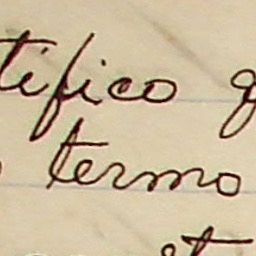 tifico q
termo